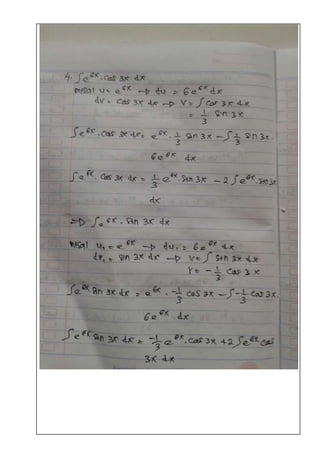 4. ∫e^6x. cos 3x dx
misal u = e^6x → du = 6e^6x dx
dv = cos 3x dx → v = ∫cos 3x dx
= 1/3 sin 3x
∫e^6x. cos 3x dx = e^6x. 1/3 sin 3x - ∫1/3 sin 3x.
6e^6x dx
∫e^6x. cos 3x dx = 1/3 e^6x. sin 3x - 2∫e^6x. sin 3x
dx
=> ∫e^6x. sin 3x dx
misal u₁ = e^6x → du₁ = 6e^6x dx
dv₁ = sin 3x dx → v = ∫sin 3x dx
v = -1/3 cos 3x
∫e^6x sin 3x dx = e^6x. -1/3 cos 3x - ∫-1/3 cos 3x.
6e^6x. dx
∫e^6x sin 3x dx = -1/3 e^6x. cos 3x + 2∫e^6x cos
3x dx